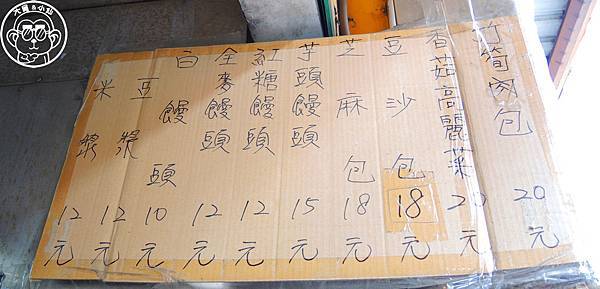 大胃&小仙
竹筍肉包 20元
香茹高麗菜 20元
豆沙包 18元
芝麻包 18元
芋頭饅頭 15元
紅糖饅頭 12元
全麥饅頭 12元
白饅頭 10元
豆漿 12元
米漿 12元